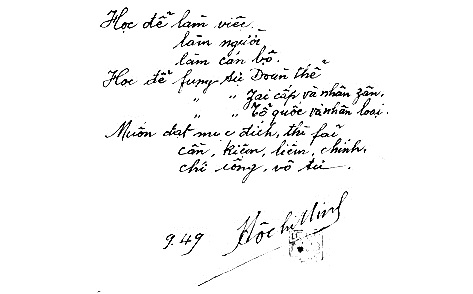 Học để làm việc.
làm người,
làm cán bộ.
Học để fụng sự Đoàn thể
" " Jai cấp và nhân zân,
" " Tổ quốc và nhân loại.
Muốn đạt mục đích, thì fải
cần, kiệm, liêm, chính,
chí công, vô tư.
9.49 Hồ Chí Minh